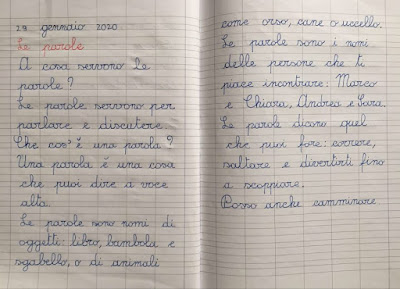 29 gennaio 2020
Le parole
A cosa servono le
parole?
Le parole servono per
parlare e discutere.
Che cos'è una parola?
Una parola è una cosa
che puoi dire a voce
alta.
Le parole sono nomi di
oggetti: libro, bambola e
sgabello, o di animali
come orso, cane o uccello.
Le parole sono i nomi
delle persone che ti
piace incontrare: Marco
e Chiara, Andrea e Sara.
Le parole dicono quel
che puoi fare: correre,
saltare e divertirti fino
a scoppiare.
Posso anche camminare